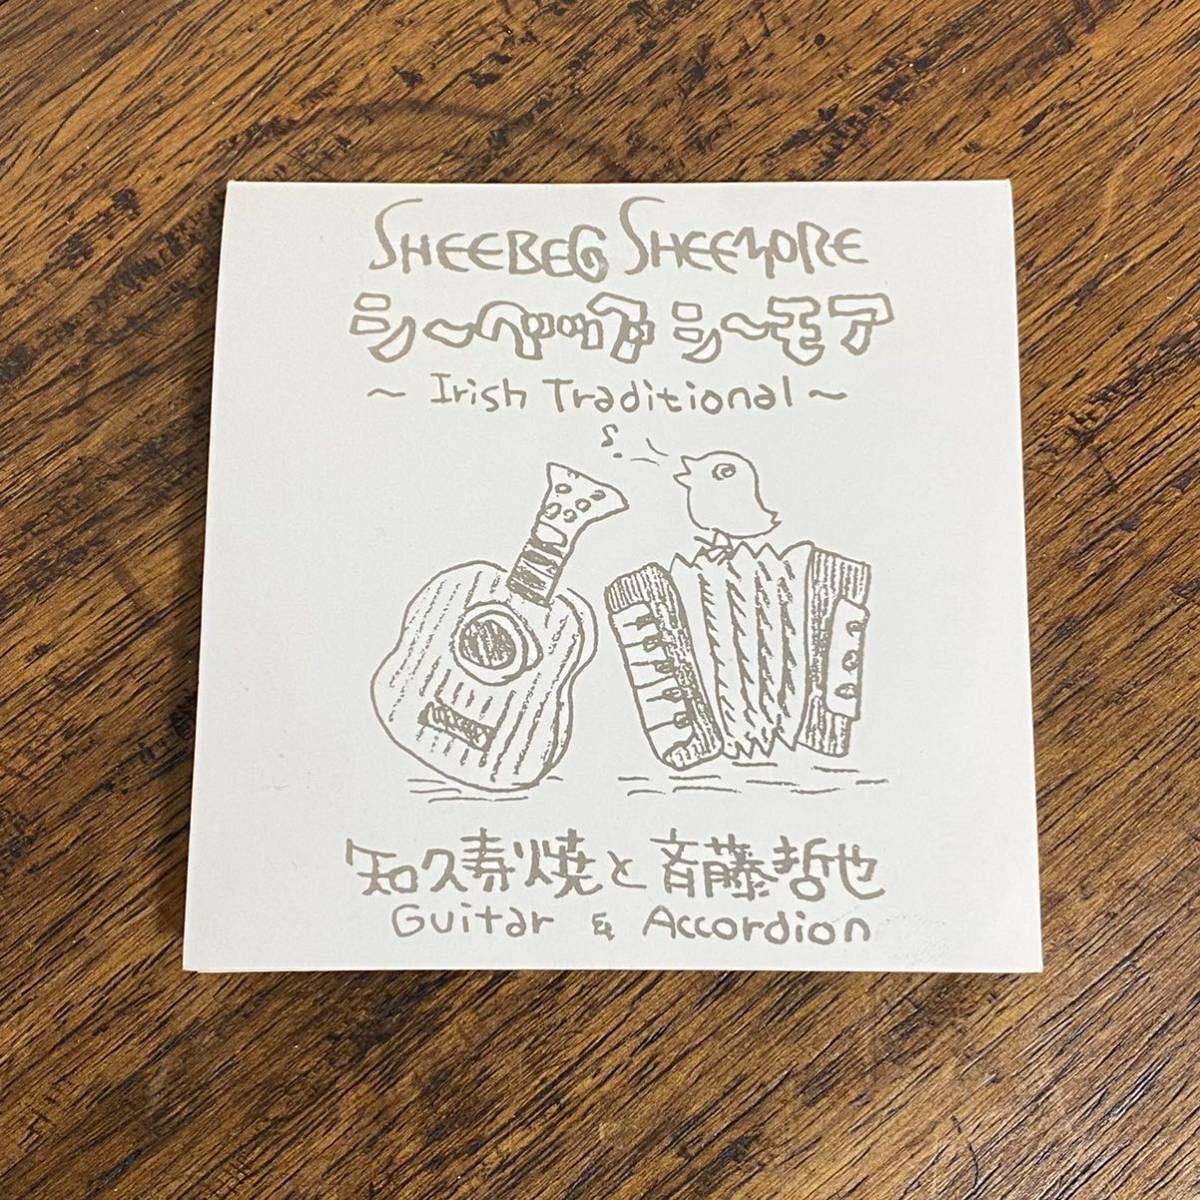 SHEEBEG SHEEMORE
シーベッグ シーモア
～ Irish Traditional ～
知久寿焼と斉藤哲也
Guitar & Accordion